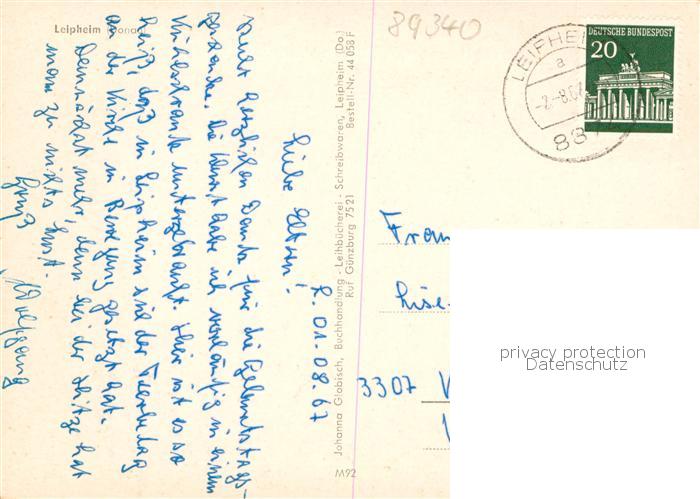 Leipheim (Donau)
89340
LEIPHEIM
a
-2.-8.67
887
DEUTSCHE BUNDESPOST
20
L. 01.08.67
Liebe Eltern!
Sehr herzlichen Dank für die Geburtstags-
geschenke. Die Wurst habe ich vorläufig in einem
Kühlschrank untergebracht. Hier ist es so
heiß, daß in Leipheim sie der
an der Kirche in Bewegung gesetzt hat.
Demnächst mehr, denn bei der Hitze hat
man zu nichts Lust.
Gruß
Wolfgang
Johanna Globisch, Buchhandlung - Leihbücherei - Schreibwaren, Leipheim (Do.)
Ruf Günzburg 7521 Bestell-Nr. 44 058 F
M92
Frau
Lise
3307
privacy protection
Datenschutz